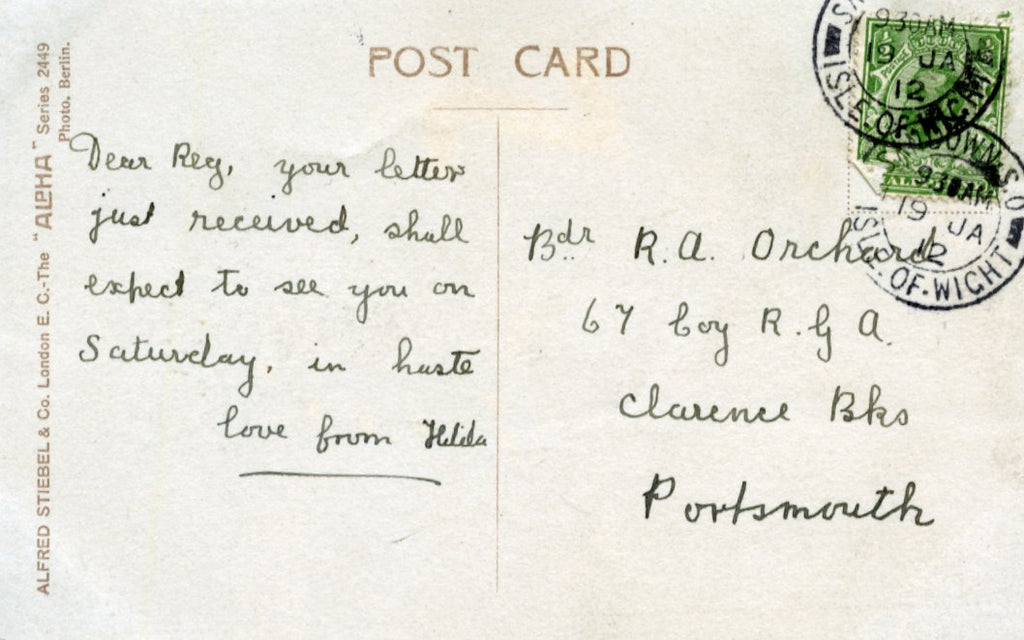 POST CARD
ALFRED STIEBEL & Co. London E. C.-The "ALPHA" Series 2449
Photo. Berlin.
Dear Reg, your letter
just received, shall
expect to see you on
Saturday, in haste
love from Hilda
Bdr R.A. Orchard
67 Coy R.G.A.
Clarence Bks
Portsmouth
930AM
19 JA
12
ISLE.OF.WIGHT
DOWN.S.O
930AM
19 JA
12
ISLE.OF.WIGHT